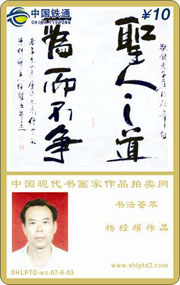 中国铁通
CHINA TIETONG
¥10
聖人之道
為而不争
中国现代书画家作品拍卖网
书法荟萃
杨经耀作品
www.shlptd2.com
SHLPTD-wz-07-6-53